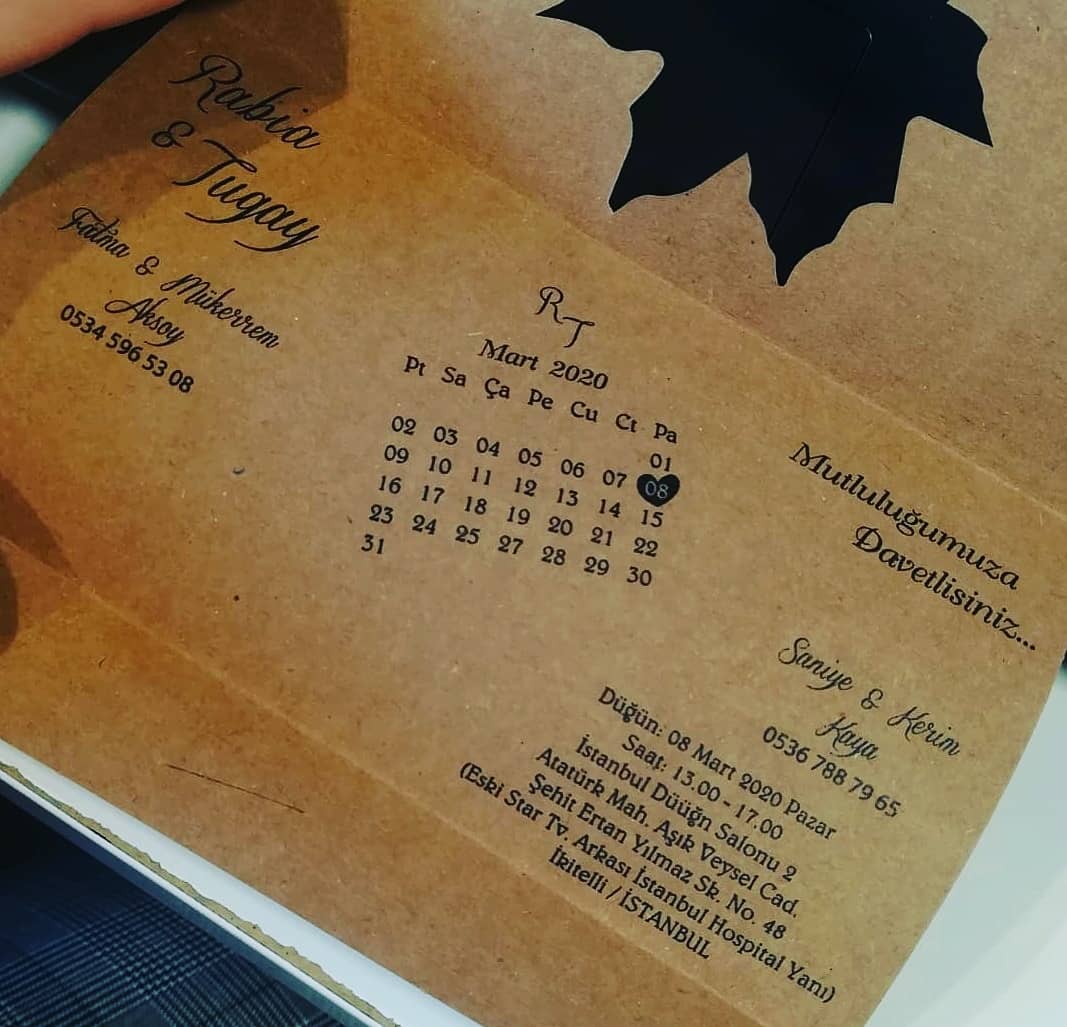 Rabia
& Tugay
Fatma & Mükerrem
Aksoy
0534 596 53 08
RT
Mart 2020
Pt Sa Ça Pe Cu Ct Pa
01
02 03 04 05 06 07 08
09 10 11 12 13 14 15
16 17 18 19 20 21 22
23 24 25 27 28 29 30
31
Mutluluğumuza
Davetlisiniz...
Saniye & Kerim
Kaya
0536 788 79 65
Düğün: 08 Mart 2020 Pazar
Saat: 13.00 - 17.00
İstanbul Düüğn Salonu 2
Atatürk Mah. Aşık Veysel Cad.
Şehit Ertan Yılmaz Sk. No. 48
(Eski Star Tv. Arkası İstanbul Hospital Yanı)
İkitelli / İSTANBUL